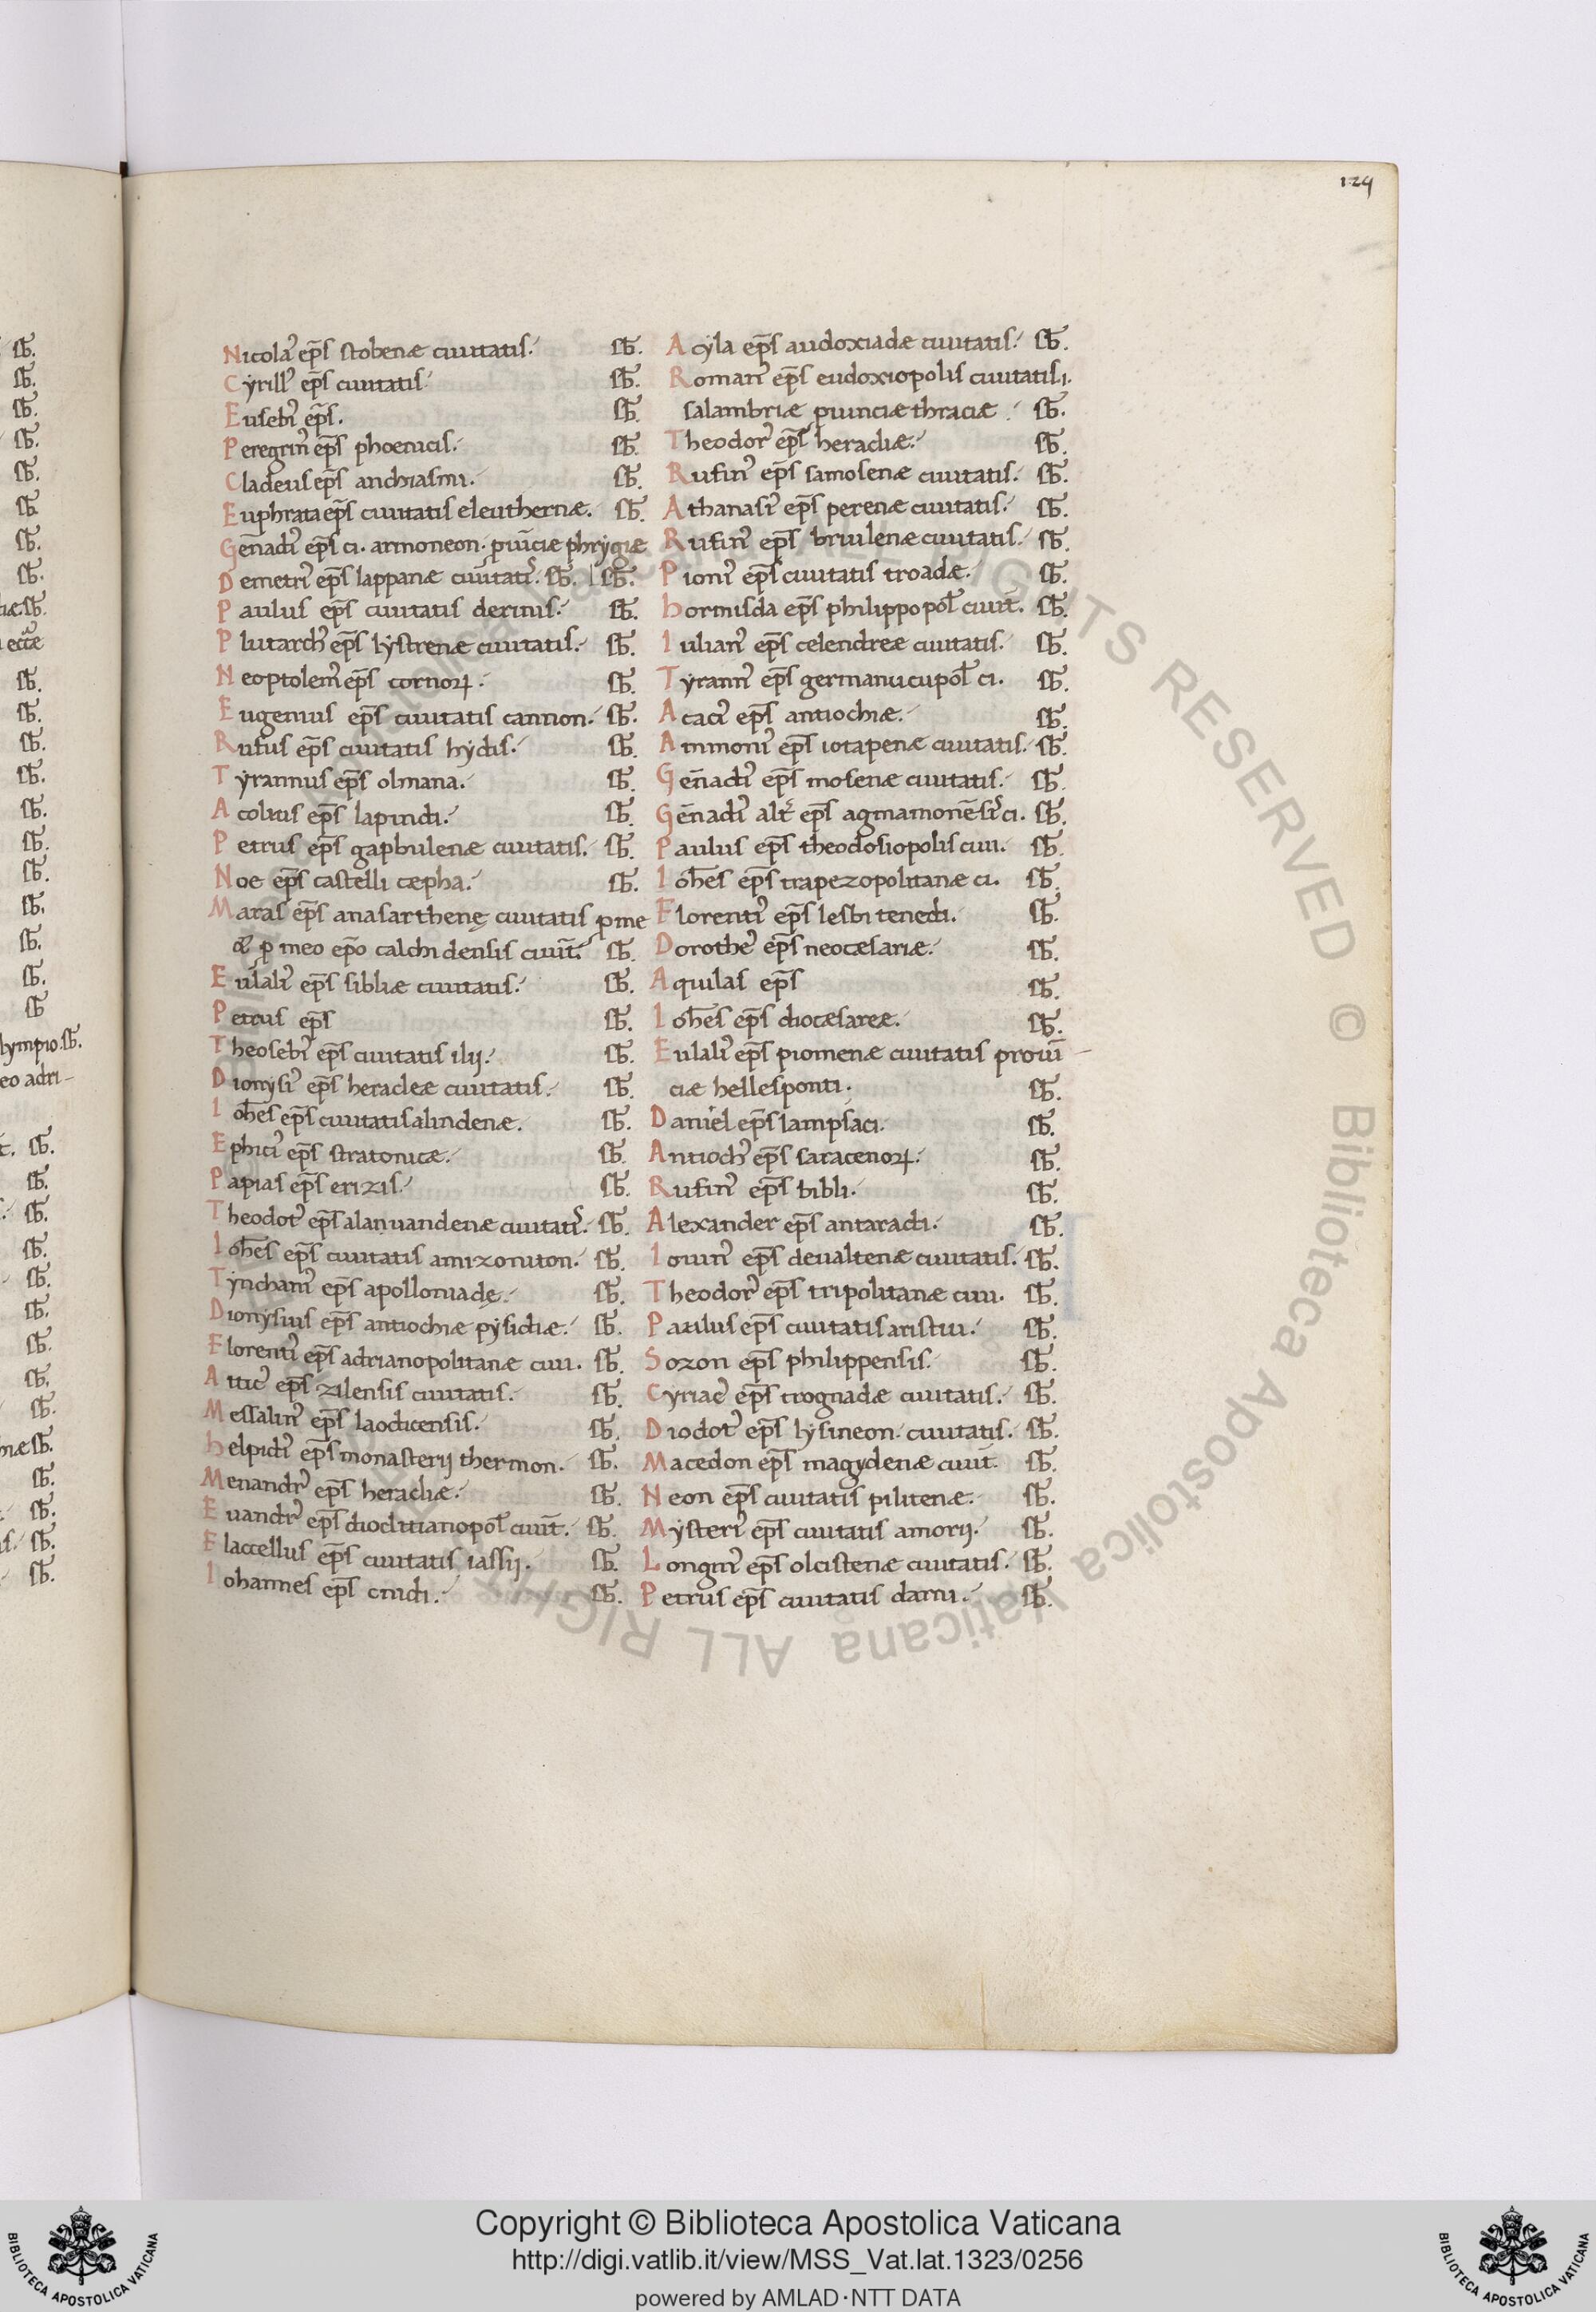 129
Nicola᷒ ep̄s stobenæ ciuitatis. sb̄.
Cyrill᷒ ep̄s ciuitatis. sb̄.
Eusebi᷒ ep̄s. sb̄.
Peregrin᷒ ep̄s phoenicis. sb̄.
Cladeus ep̄s anchiasmi. sb̄.
Euphrata ep̄s ciuitatis eleuthernæ. sb̄.
Gen̄adi᷒ ep̄s ci. armoneon. ꝓuīciæ phrygiæ
Demetri᷒ ep̄s lappanæ ciuitati᷒. sb̄. | sb̄.
Paulus ep̄s ciuitatis derinis. sb̄.
Plutarch᷒ ep̄s lystrenæ ciuitatis. sb̄.
Neoptolem᷒ ep̄s cornoꝝ. sb̄.
Eugenius ep̄s ciuitatis cannon. sb̄.
Rufus ep̄s ciuitatis hydis. sb̄.
Tyrannus ep̄s olmana. sb̄.
Acolius ep̄s lapindi. sb̄.
Petrus ep̄s gapbulenæ ciuitatis. sb̄.
Noe ep̄s castelli cæpha. sb̄.
Maras ep̄s anasarthenę ciuitatis ꝑ me
& ꝓ meo ep̄o calchidensis ciuit̄. sb̄.
Eulali᷒ ep̄s sibliæ ciuitatis. sb̄.
Petrus ep̄s sb̄.
Theosebi᷒ ep̄s ciuitatis ilij. sb̄.
Dionysi᷒ ep̄s heracleæ ciuitatis. sb̄.
Ioh̄es ep̄s ciuitatis alindenæ. sb̄.
Ephici᷒ ep̄s stratonicæ. sb̄.
Papias ep̄s erizis. sb̄.
Theodot᷒ ep̄s alanuandenæ ciuitati᷒. sb̄.
Ioh̄es ep̄s ciuitatis amizoniton. sb̄.
Tynchani᷒ ep̄s apolloniadę. sb̄.
Dionysius ep̄s antiochiæ pysidiæ. sb̄.
Florenti᷒ ep̄s adrianopolitanæ ciui. sb̄.
Attic᷒ ep̄s zilensis ciuitatis. sb̄.
Messalin᷒ ep̄s laodicensis. sb̄.
helpidi᷒ ep̄s monasterij thermon. sb̄.
Menandr᷒ ep̄s heracliæ. sb̄.
Euandr᷒ ep̄s dioclitianopol̄ ciuit̄. sb̄.
Flaccellus ep̄s ciuitatis iassij. sb̄.
Iohannes ep̄s cnidi. sb̄.
Acyla ep̄s audoxiadæ ciuitatis. sb̄.
Roman᷒ ep̄s eudoxiopolis ciuitatis,i.
salambriæ ꝓuinciæ thraciæ. sb̄.
Theodor᷒ ep̄s heracliæ. sb̄.
Rufin᷒ ep̄s samosenæ ciuitatis. sb̄.
Athanasi᷒ ep̄s perenæ ciuitatis. sb̄.
Rufin᷒ ep̄s briulenæ ciuitatis. sb̄.
Pioni᷒ ep̄s ciuitatis troadæ. sb̄.
hormisda ep̄s philippopol̄ ciuit̄. sb̄.
Iulian᷒ ep̄s celendreæ ciuitatis. sb̄.
Tyrann᷒ ep̄s germanucupol̄ ci. sb̄.
Acaci᷒ ep̄s antiochiæ. sb̄.
Ammoni᷒ ep̄s iotapenæ ciuitatis. sb̄.
Gen̄adi᷒ ep̄s mosenæ ciuitatis. sb̄.
Gen̄adi᷒ alt̄ ep̄s agmamonēsi᷒ ci. sb̄.
Paulus ep̄s theodosiopolis ciui. sb̄.
Ioh̄es ep̄s trapezopolitanæ ci. sb̄.
Florenti᷒ ep̄s lesbi tenedi. sb̄.
Dorothe᷒ ep̄s neocæsariæ. sb̄.
Aquilas ep̄s sb̄.
Ioh̄es ep̄s diocæsareæ. sb̄.
Eulali᷒ ep̄s piomenæ ciuitatis prouī-
ciæ hellesponti. sb̄.
Daniel ep̄s lampsaci. sb̄.
Antioch᷒ ep̄s saracenoꝝ. sb̄.
Rufin᷒ ep̄s bibli. sb̄.
Alexander ep̄s antaradi. sb̄.
Iouin᷒ ep̄s deualtenæ ciuitatis. sb̄.
Theodor᷒ ep̄s tripolitanæ ciui. sb̄.
Patilus ep̄s ciuitatis aristiu. sb̄.
Sozon ep̄s philippensis. sb̄.
Cyriac᷒ ep̄s trognadæ ciuitatis. sb̄.
Diodot᷒ ep̄s lysineon ciuitatis. sb̄.
Macedon ep̄s magydenæ ciuit̄. sb̄.
Neon ep̄s ciuitatis pilitenæ. sb̄.
Mysteri᷒ ep̄s ciuitatis amorij. sb̄.
Longin᷒ ep̄s olcistenæ ciuitatis. sb̄.
Petrus ep̄s ciuitatis darni. sb̄.
Copyright © Biblioteca Apostolica Vaticana
http://digi.vatlib.it/view/MSS_Vat.lat.1323/0256
powered by AMLAD·NTT DATA
BIBLIOTECA APOSTOLICA VATICANA
BIBLIOTECA APOSTOLICA VATICANA